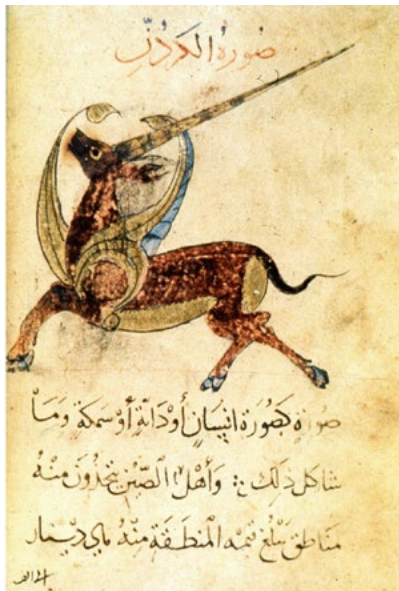 صورة الكركدن
صورة كصورة انسان أو دابة أو سمكة وما
شاكل ذلك وأهل الصين يتخذون منه
مناطق تبلغ قيمة المنطقة منه ماى دينار